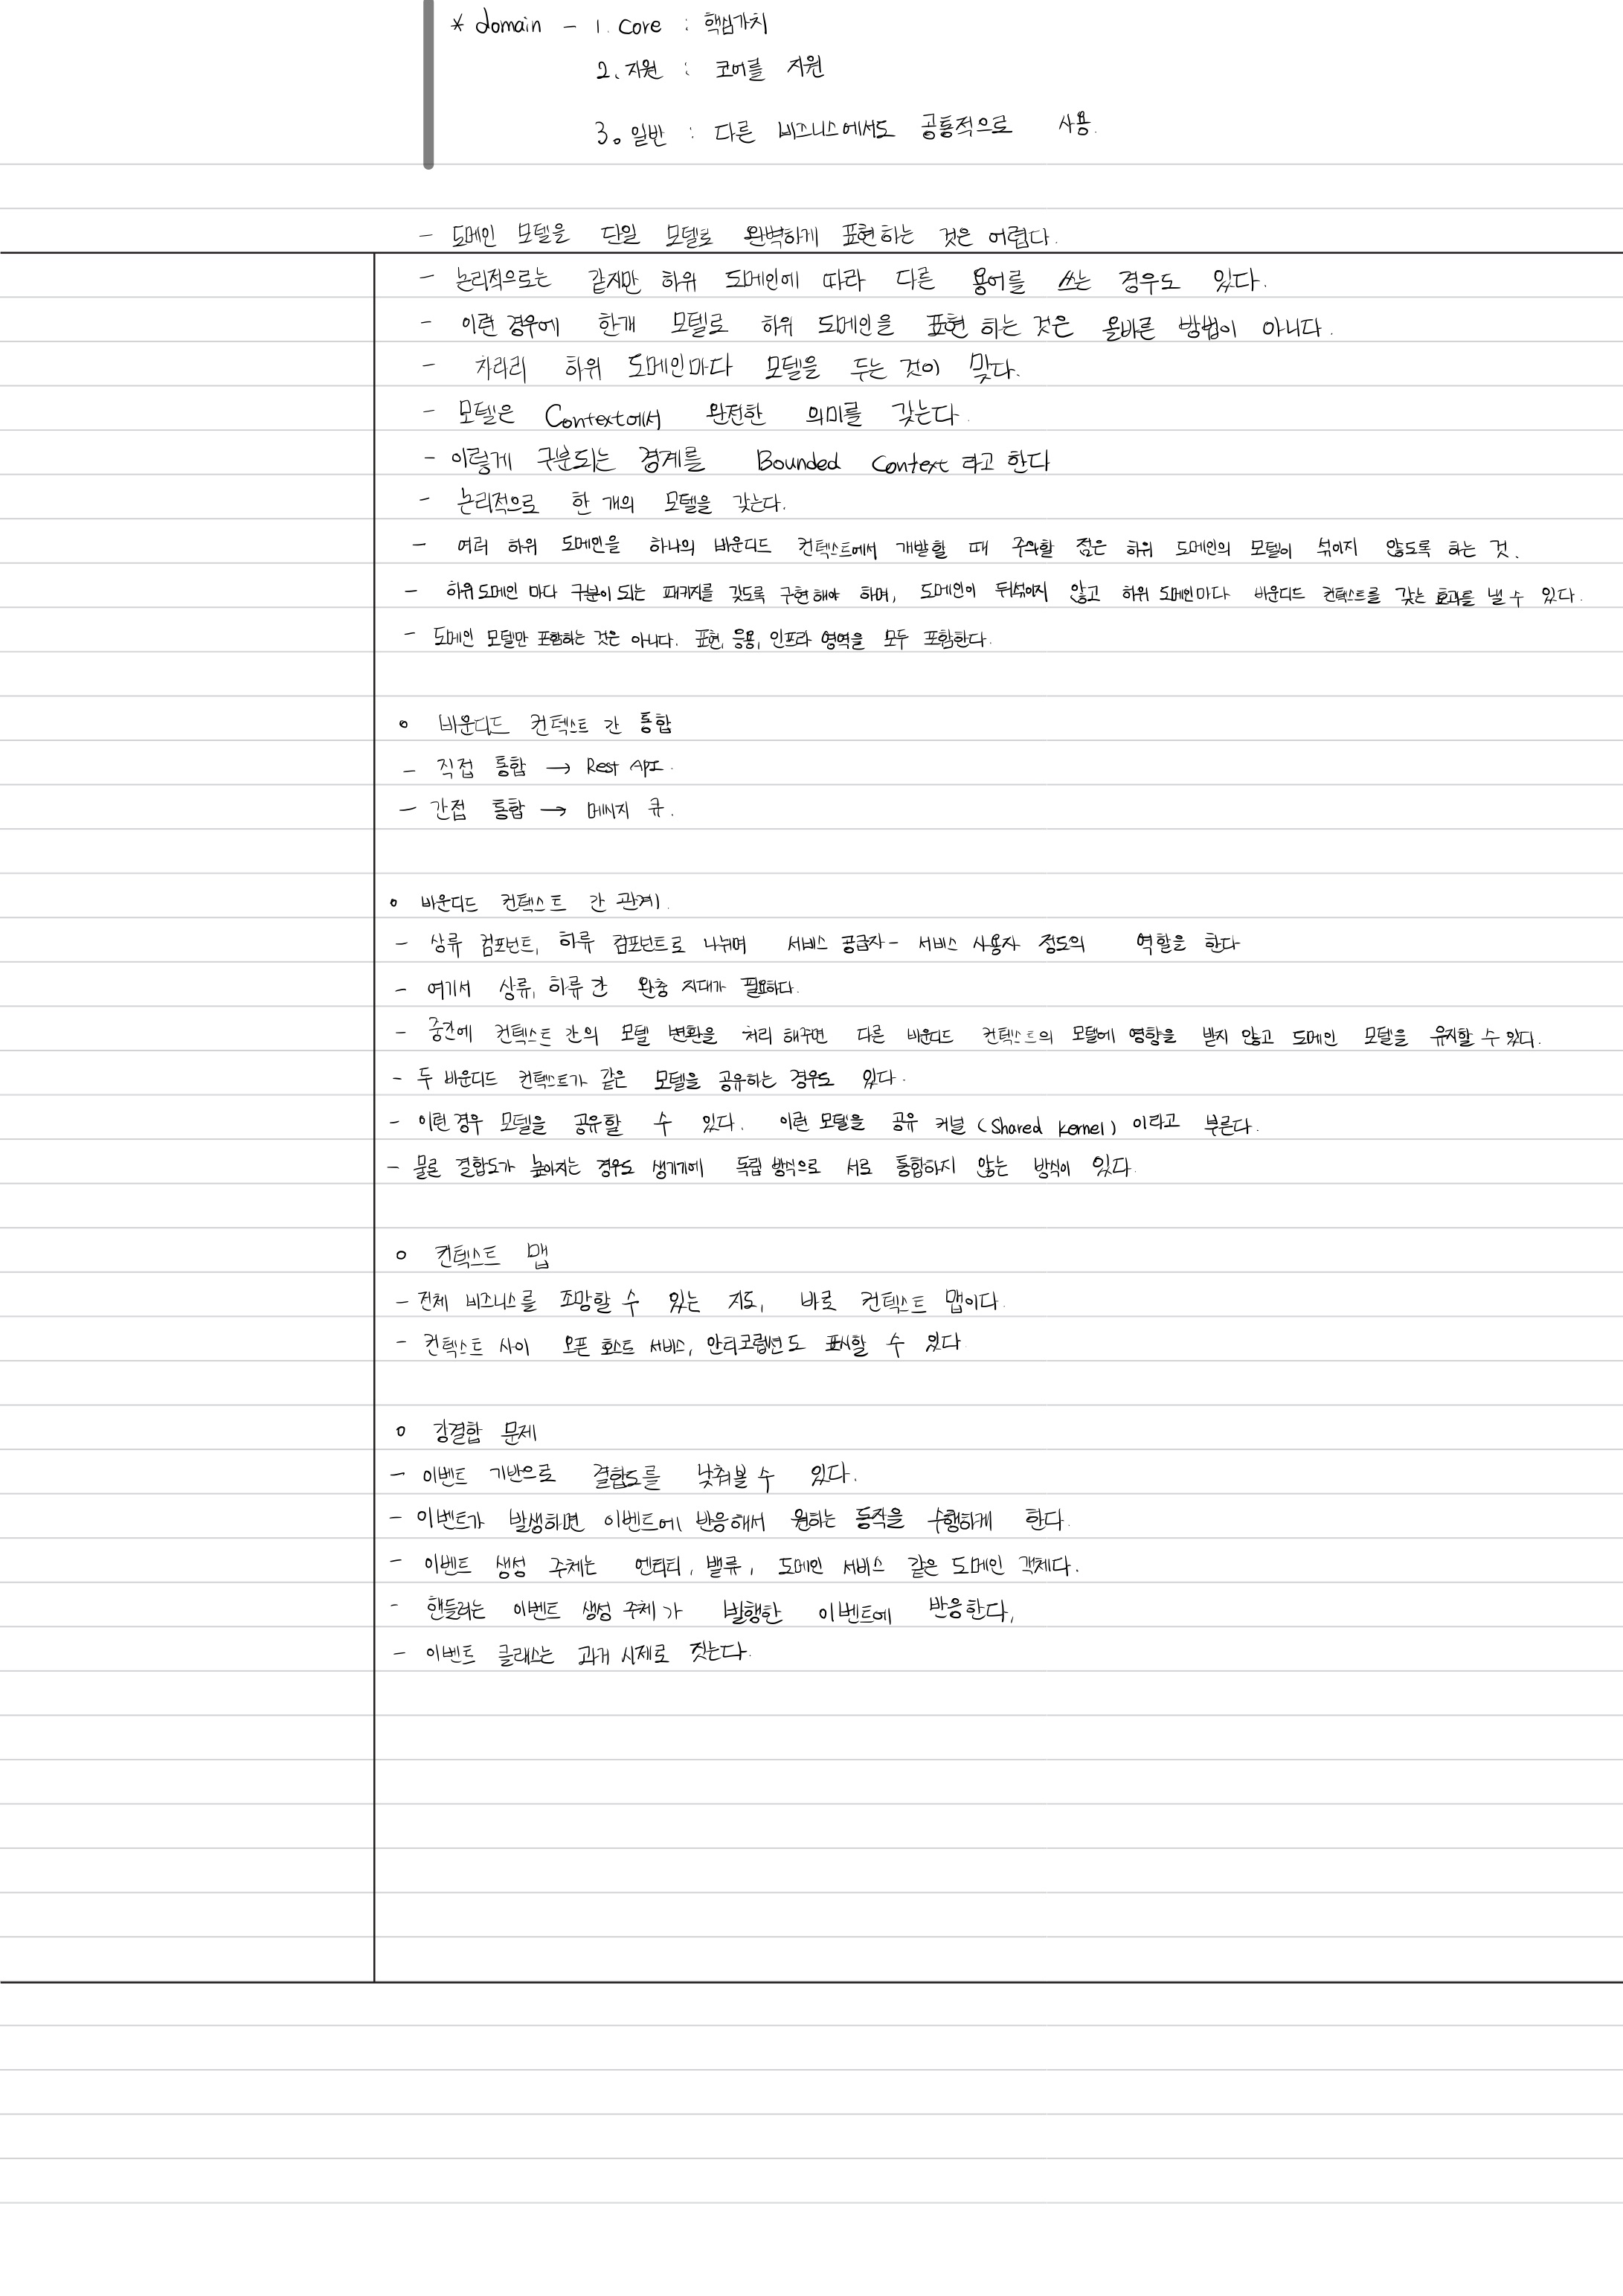 * domain - 1. Core : 핵심가치
2. 지원 : 코어를 지원
3. 일반 : 다른 비즈니스에서도 공통적으로 사용.
- 도메인 모델을 단일 모델로 완벽하게 표현하는 것은 어렵다.
- 논리적으로는 같지만 하위 도메인에 따라 다른 용어를 쓰는 경우도 있다.
- 이런 경우에 한개 모델로 하위 도메인을 표현 하는 것은 올바른 방법이 아니다.
- 차라리 하위 도메인마다 모델을 두는 것이 맞다.
- 모델은 Context에서 완전한 의미를 갖는다.
- 이렇게 구분되는 경계를 Bounded Context 라고 한다
- 논리적으로 한 개의 모델을 갖는다.
- 여러 하위 도메인을 하나의 바운디드 컨텍스트에서 개발할 때 주의할 점은 하위 도메인의 모델이 섞이지 않도록 하는 것.
- 하위도메인 마다 구분이 되는 패키지를 갖도록 구현해야 하며, 도메인이 뒤섞이지 않고 하위 도메인마다 바운디드 컨텍스트를 갖는 효과를 낼 수 있다.
- 도메인 모델만 포함하는 것은 아니다. 표현, 응용, 인프라 영역을 모두 포함한다.
∘ 바운디드 컨텍스트 간 통합
- 직접 통합 → Rest API.
- 간접 통합 → 메시지 큐.
∘ 바운디드 컨텍스트 간 관계.
- 상류 컴포넌트, 하류 컴포넌트로 나뉘며 서비스 공급자 - 서비스 사용자 정도의 역할을 한다
- 여기서 상류, 하류 간 완충 지대가 필요하다.
- 중간에 컨텍스트 간의 모델 변환을 처리 해주면 다른 바운디드 컨텍스트의 모델에 영향을 받지 않고 도메인 모델을 유지할 수 있다.
- 두 바운디드 컨텍스트가 같은 모델을 공유하는 경우도 있다.
- 이런 경우 모델을 공유할 수 있다. 이런 모델을 공유 커널 (Shared Kernel) 이라고 부른다.
- 물론 결합도가 높아지는 경우도 생기기에 독립 방식으로 서로 통합하지 않는 방식이 있다.
∘ 컨텍스트 맵
- 전체 비즈니스를 조망할 수 있는 지도, 바로 컨텍스트 맵이다.
- 컨텍스트 사이 오픈 호스트 서비스, 안티코럽션도 표시할 수 있다
∘ 강결합 문제
- 이벤트 기반으로 결합도를 낮춰볼 수 있다.
- 이벤트가 발생하면 이벤트에 반응해서 원하는 동작을 수행하게 한다.
- 이벤트 생성 주체는 엔티티, 밸류, 도메인 서비스 같은 도메인 객체다.
- 핸들러는 이벤트 생성 주체가 발행한 이벤트에 반응한다,
- 이벤트 클래스는 과거 시제로 짓는다.